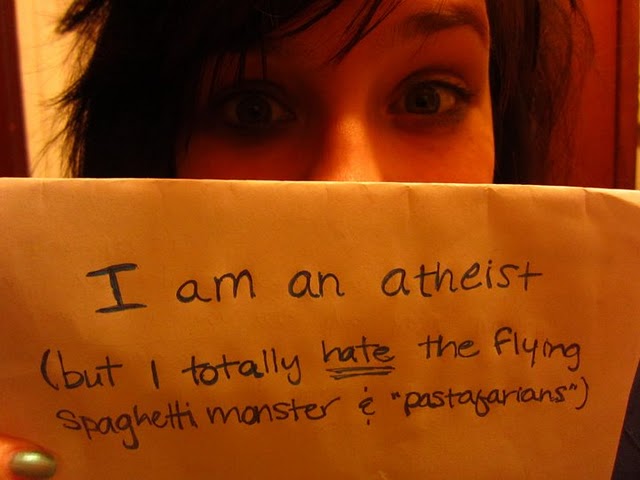 I am an atheist
(but I totally hate the flying
spaghetti monster & "pastafarians")